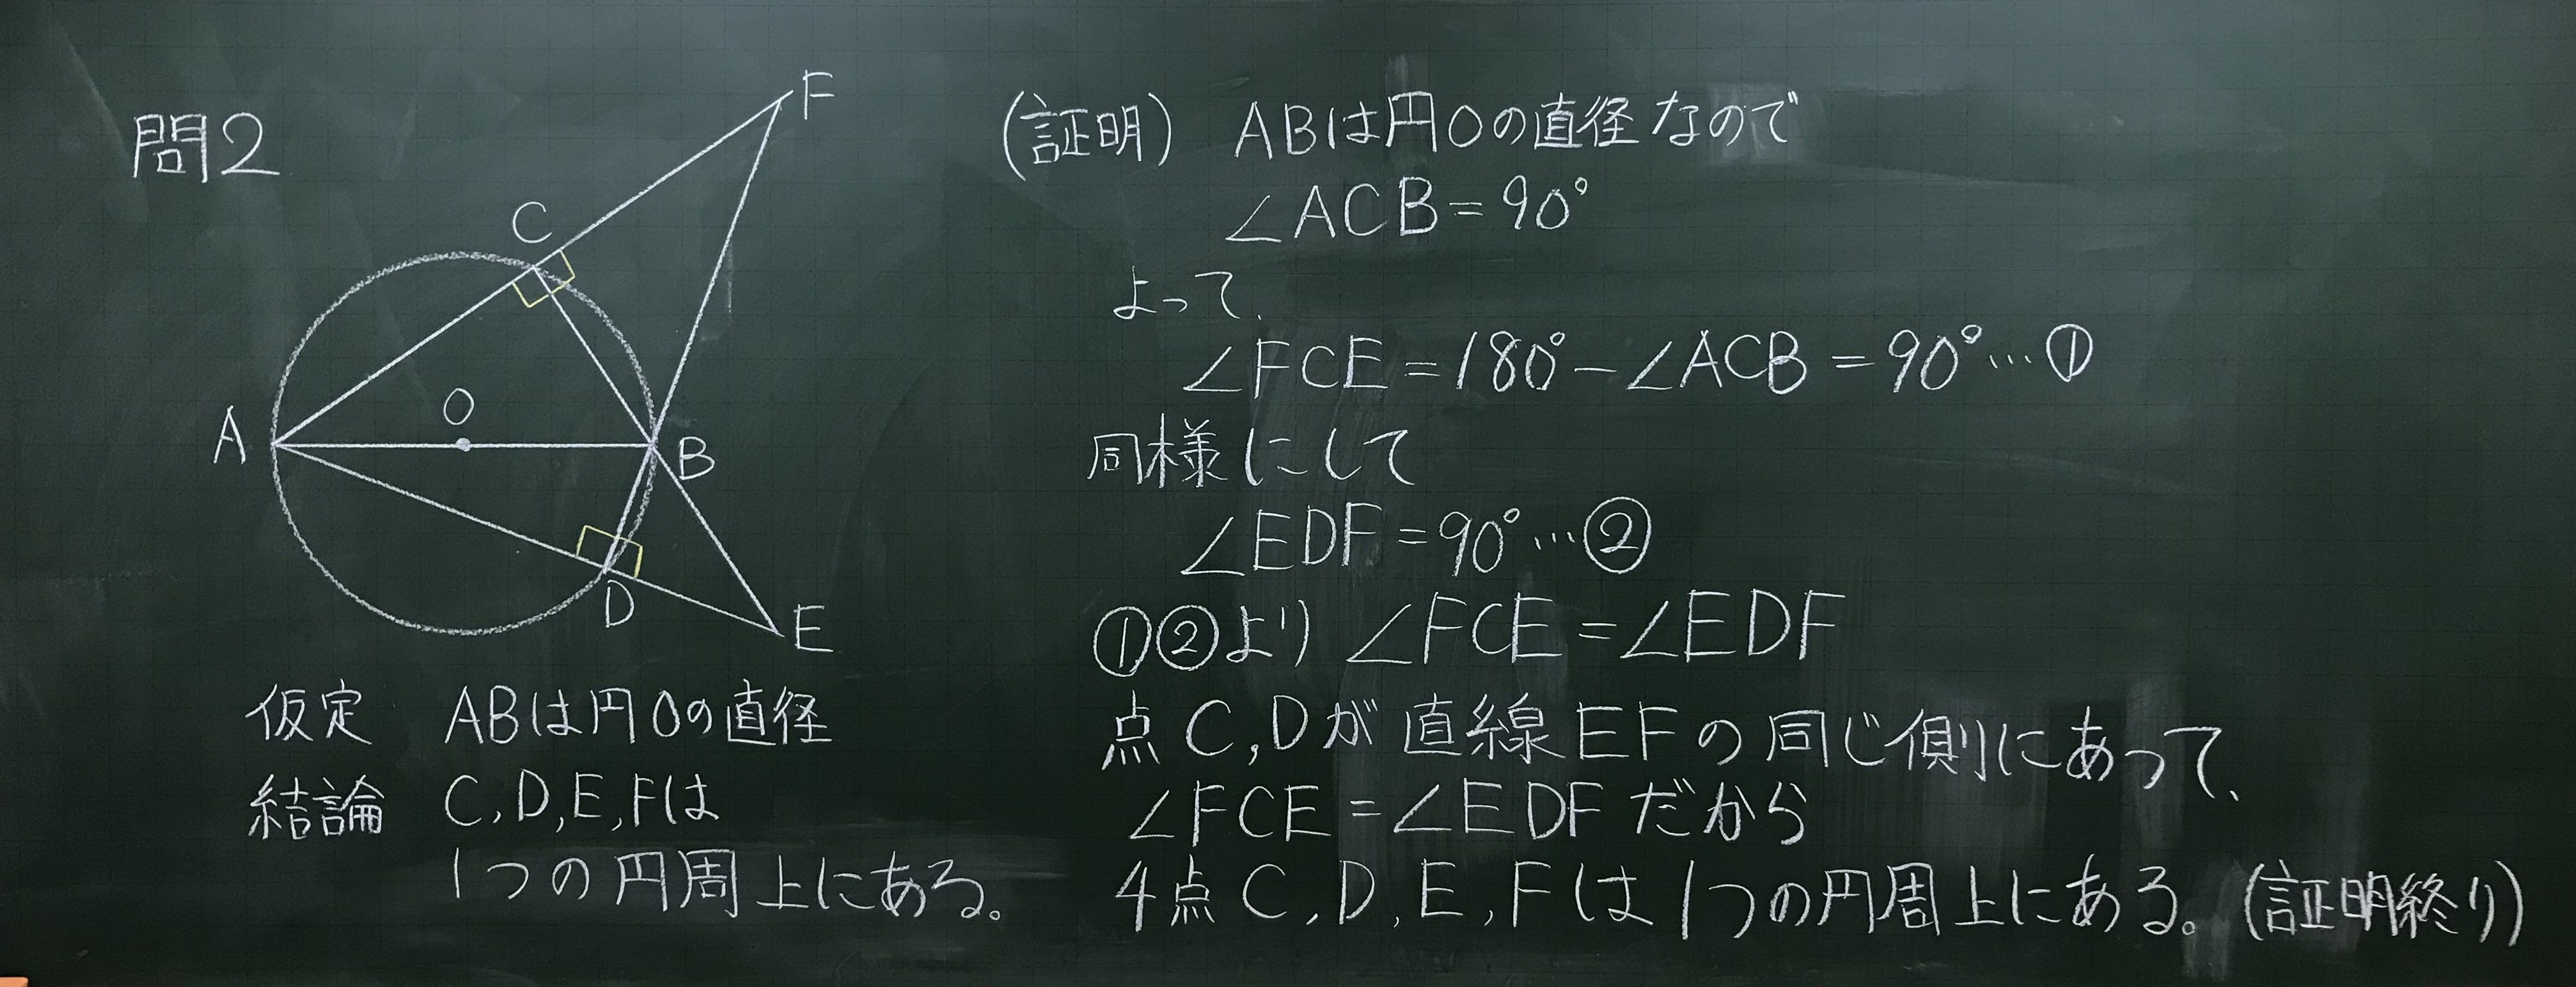 問2
F
C
O
A
B
D
E
仮定 ABは円Oの直径
結論 C,D,E,Fは
1つの円周上にある。
(証明) ABは円Oの直径なので
∠ACB=90°
よって、
∠FCE=180°-∠ACB=90°…①
同様にして
∠EDF=90°…②
①②より ∠FCE=∠EDF
点C,Dが直線EFの同じ側にあって、
∠FCE=∠EDFだから
4点C,D,E,Fは1つの円周上にある。(証明終り)